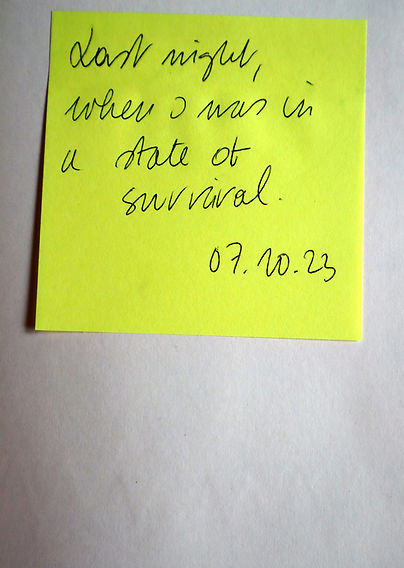 Last night,
when I was in
a state of
survival.
07.10.23